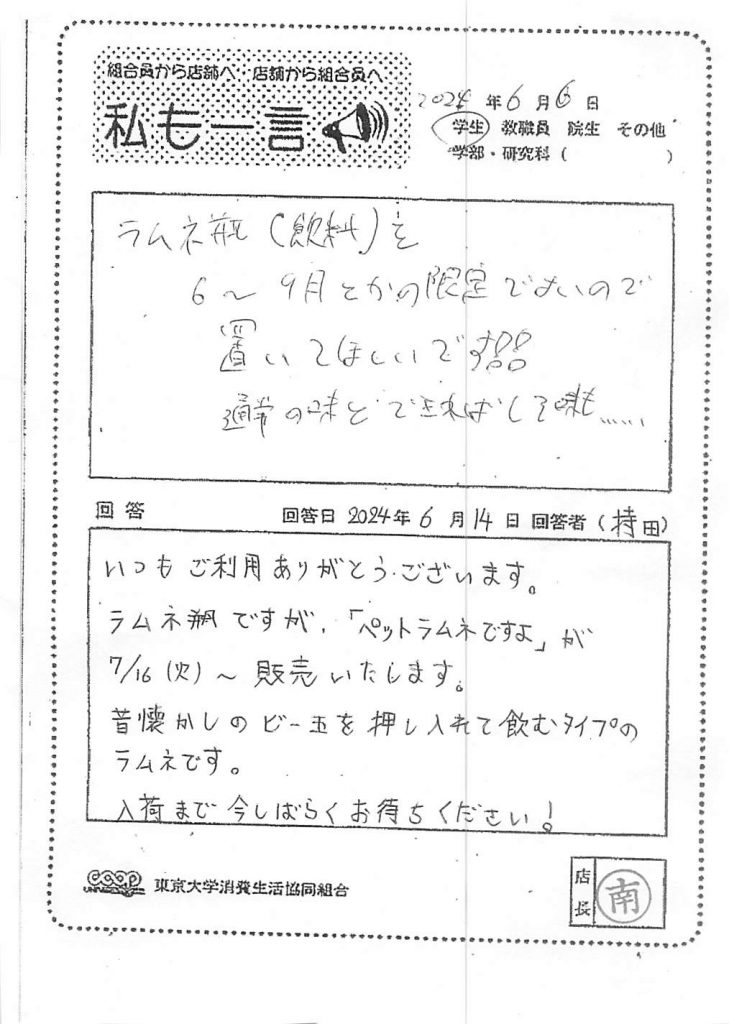 組合員から店舗へ 店舗から組合員へ
私も一言
2024年6月6日
学生 教職員 院生 その他
学部・研究科( )
ラムネ瓶(飲料)を
6〜9月とかの限定でよいので
置いてほしいです
通常の味とできればしそ味も……
回答 回答日 2024年6月14日 回答者(持田)
いつもご利用ありがとうございます。
ラムネ瓶ですが、「ペットラムネですよ」が
7/16(火)〜販売いたします。
昔懐かしのビー玉を押し入れて飲むタイプの
ラムネです。
入荷まで今しばらくお待ちください!
coop 東京大学消費生活協同組合
店長 南